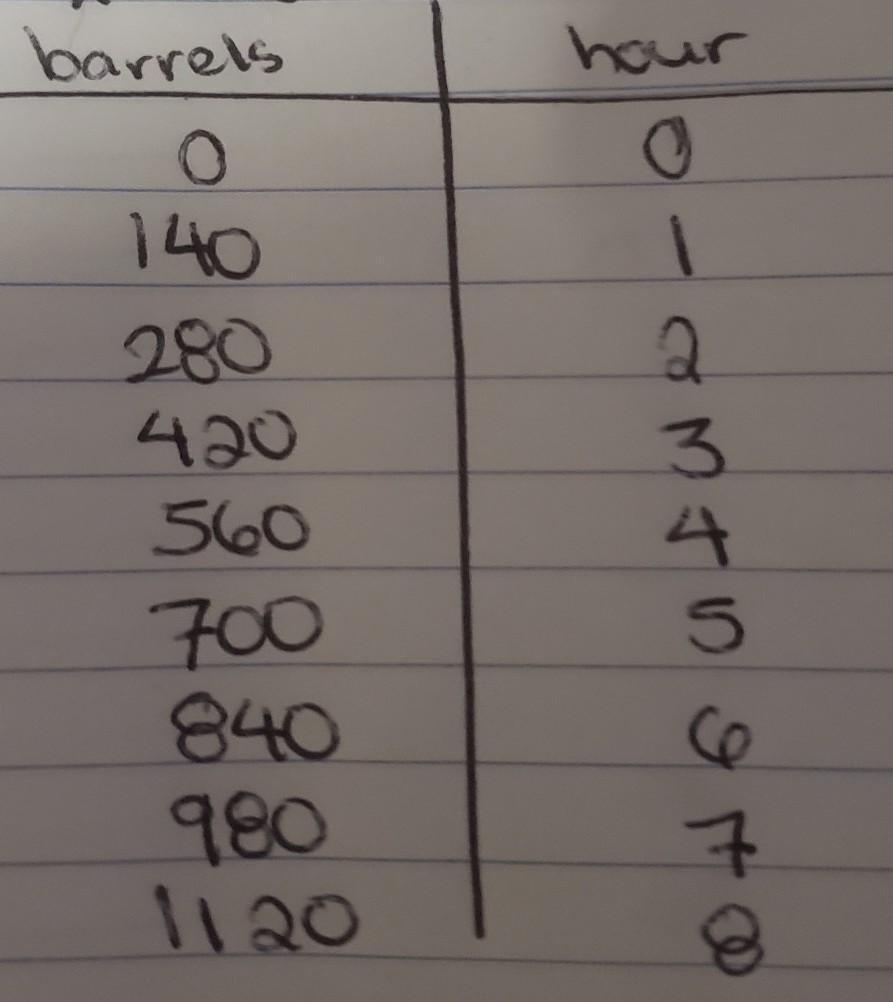 barrels hour
0 0
140 1
280 2
420 3
560 4
700 5
840 6
980 7
1120 8